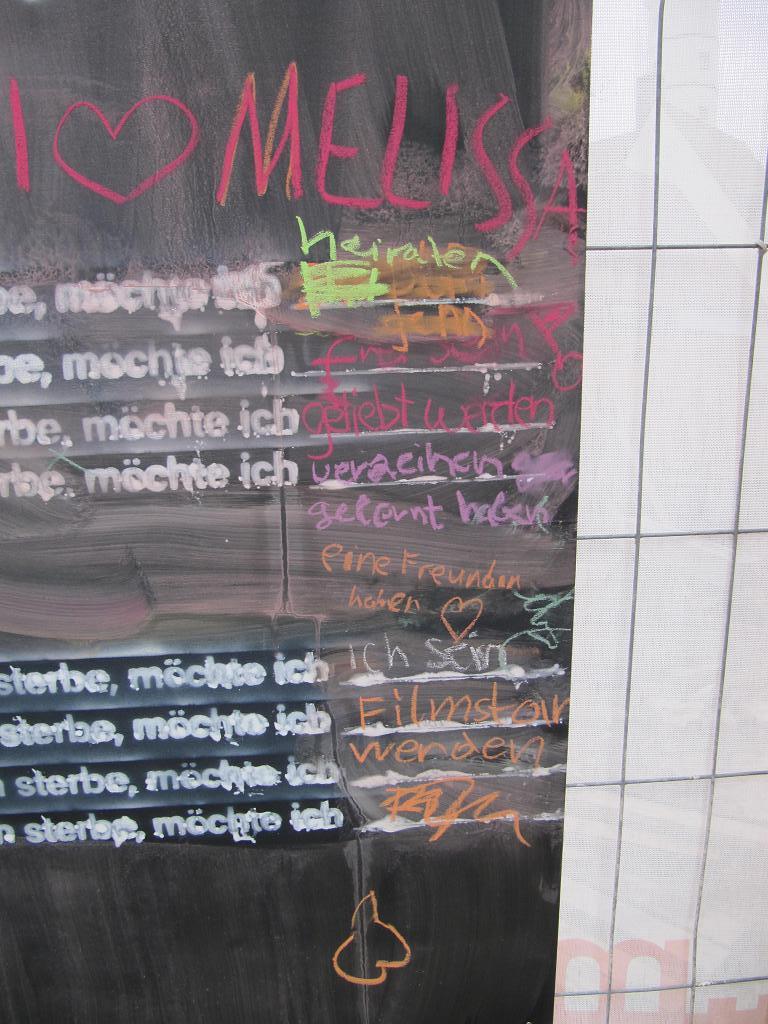 I ♡ MELISSA
heiraten
be, möchte ich
be, möchte ich frei sein!
rbe, möchte ich geliebt werden
rbe, möchte ich verzeihen
gelernt haben
eine Freundin
haben ♡
sterbe, möchte ich ich sein
sterbe, möchte ich Filmstar
werden
sterbe, möchte ich
sterbe, möchte ich